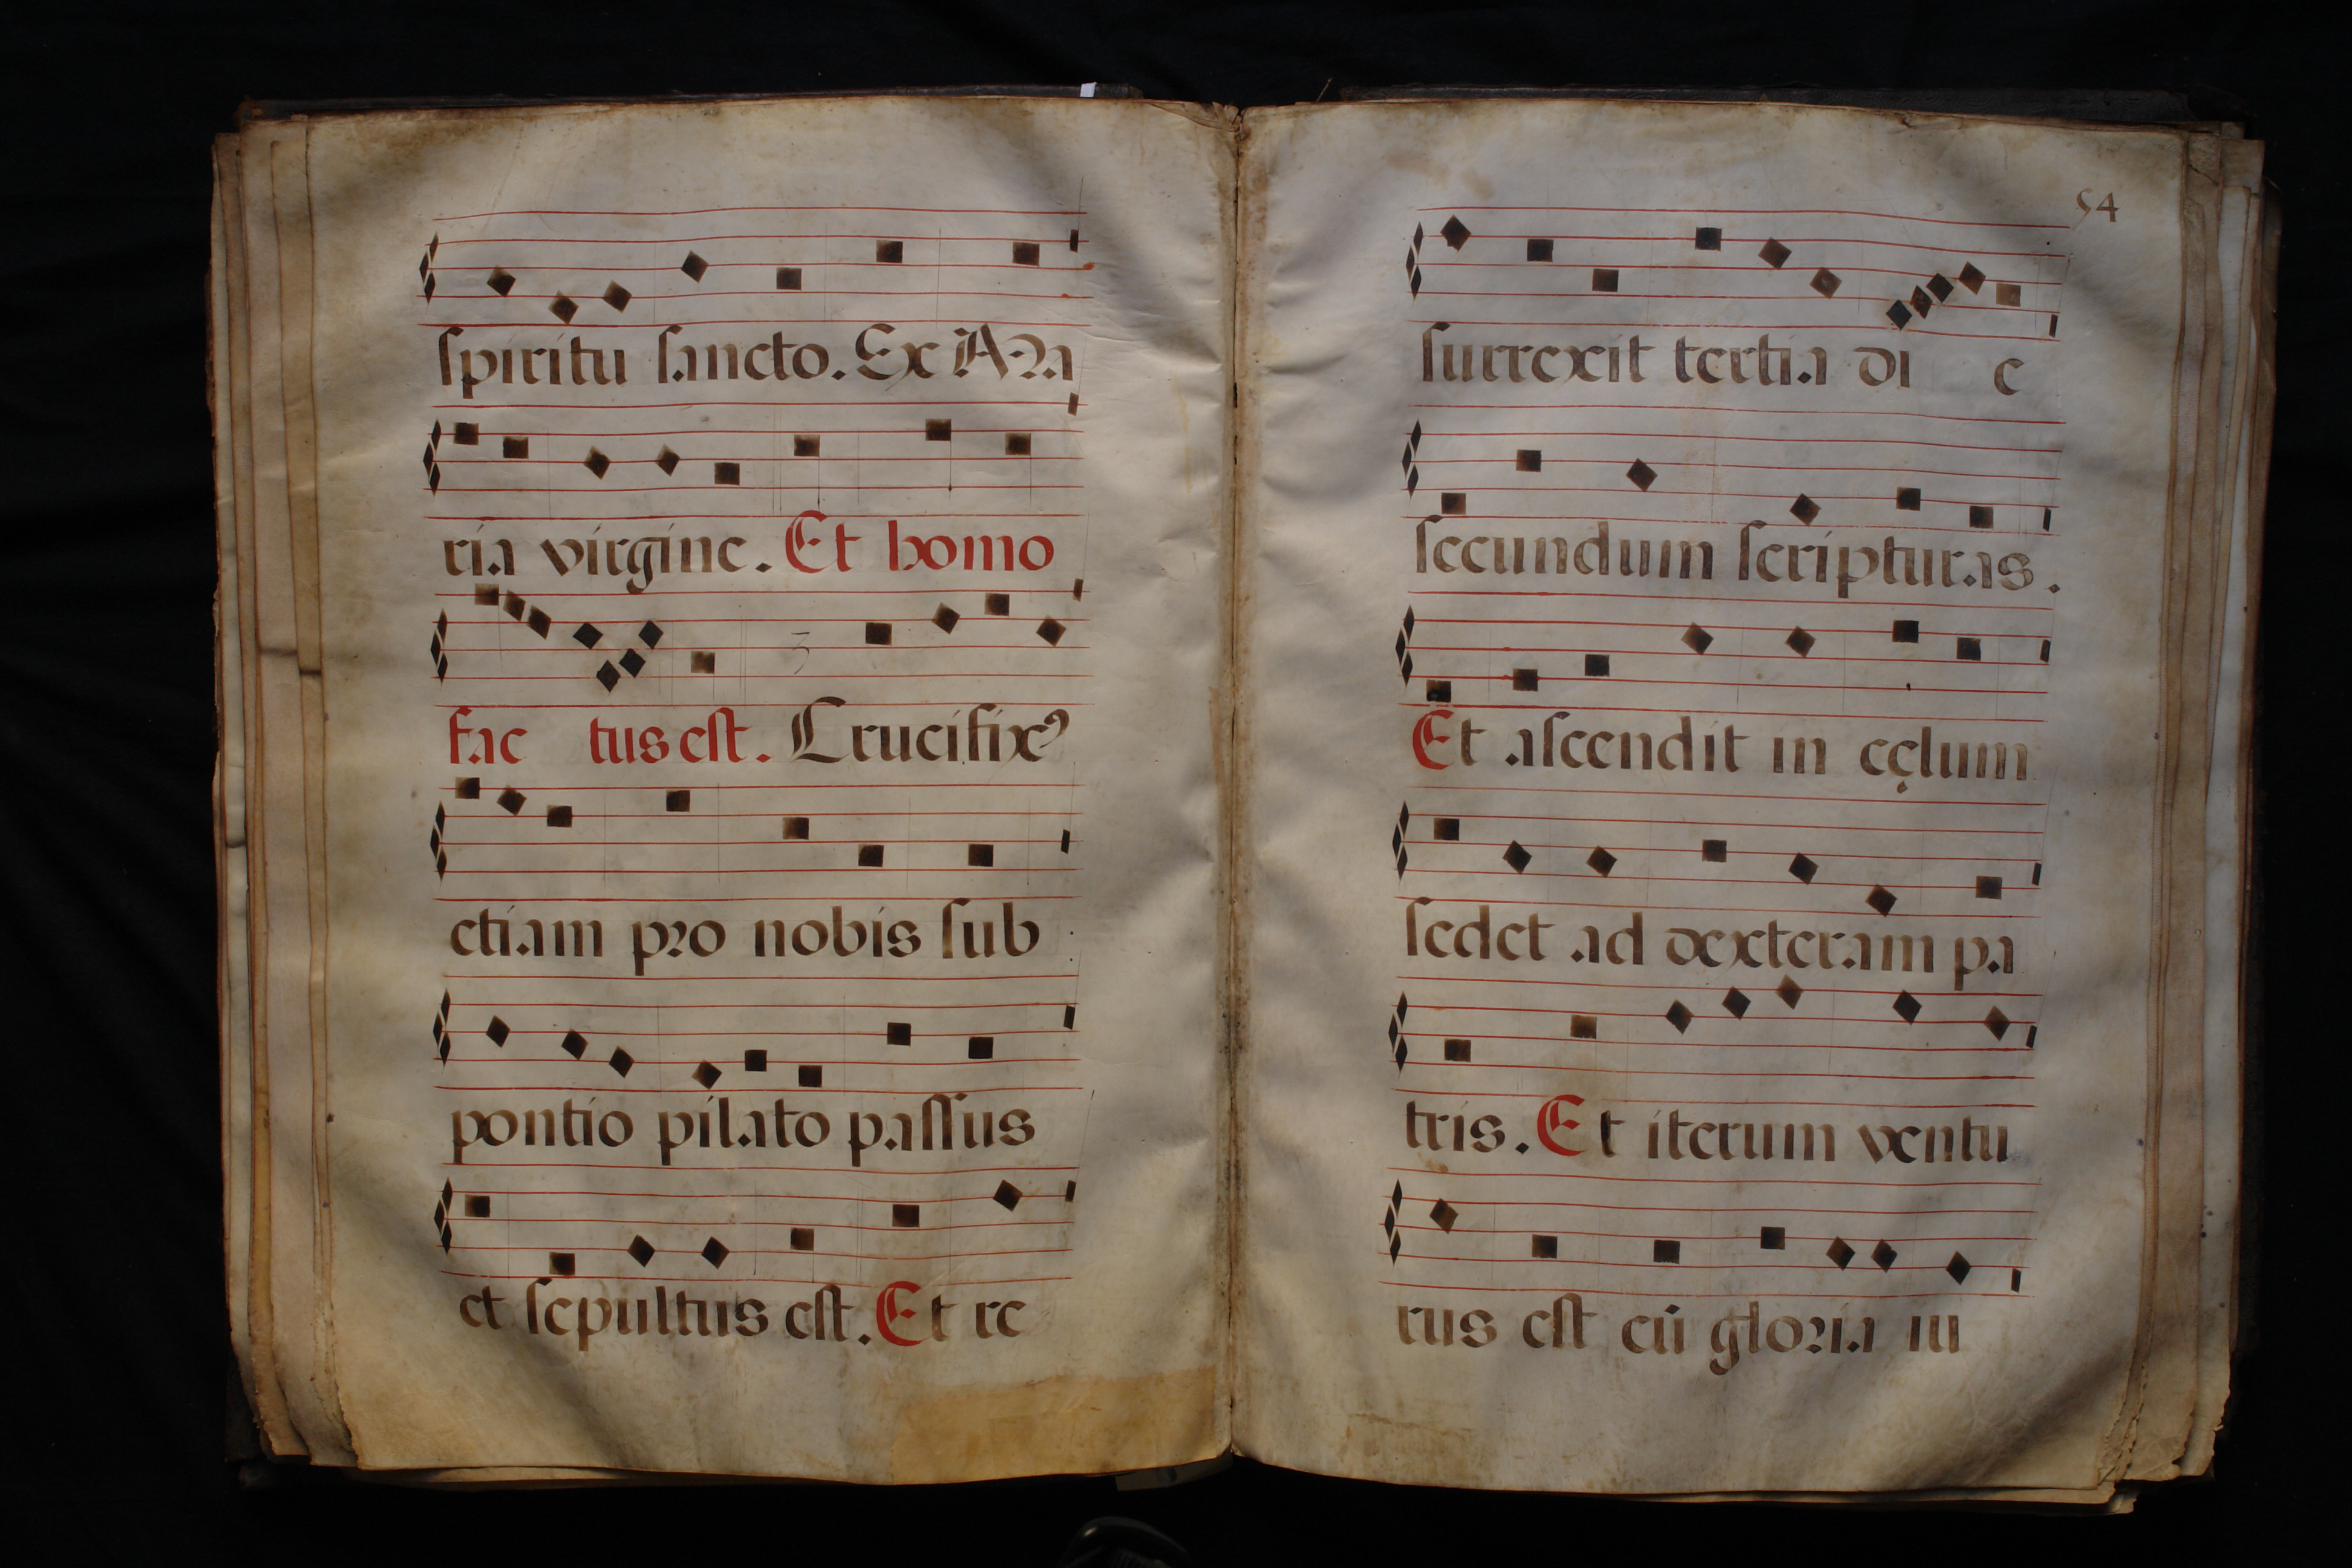 spiritu sancto. Ex Ma
ria virgine. Et homo
3
fac tus est. Crucifixꝰ
etiam pro nobis sub
pontio pilato passus
et sepultus est. Et re
54
surrexit tertia di e
secundum scripturas.
Et ascendit in cęlum
sedet ad dexteram pa
tris. Et iterum ventu
rus est cū gloria iu